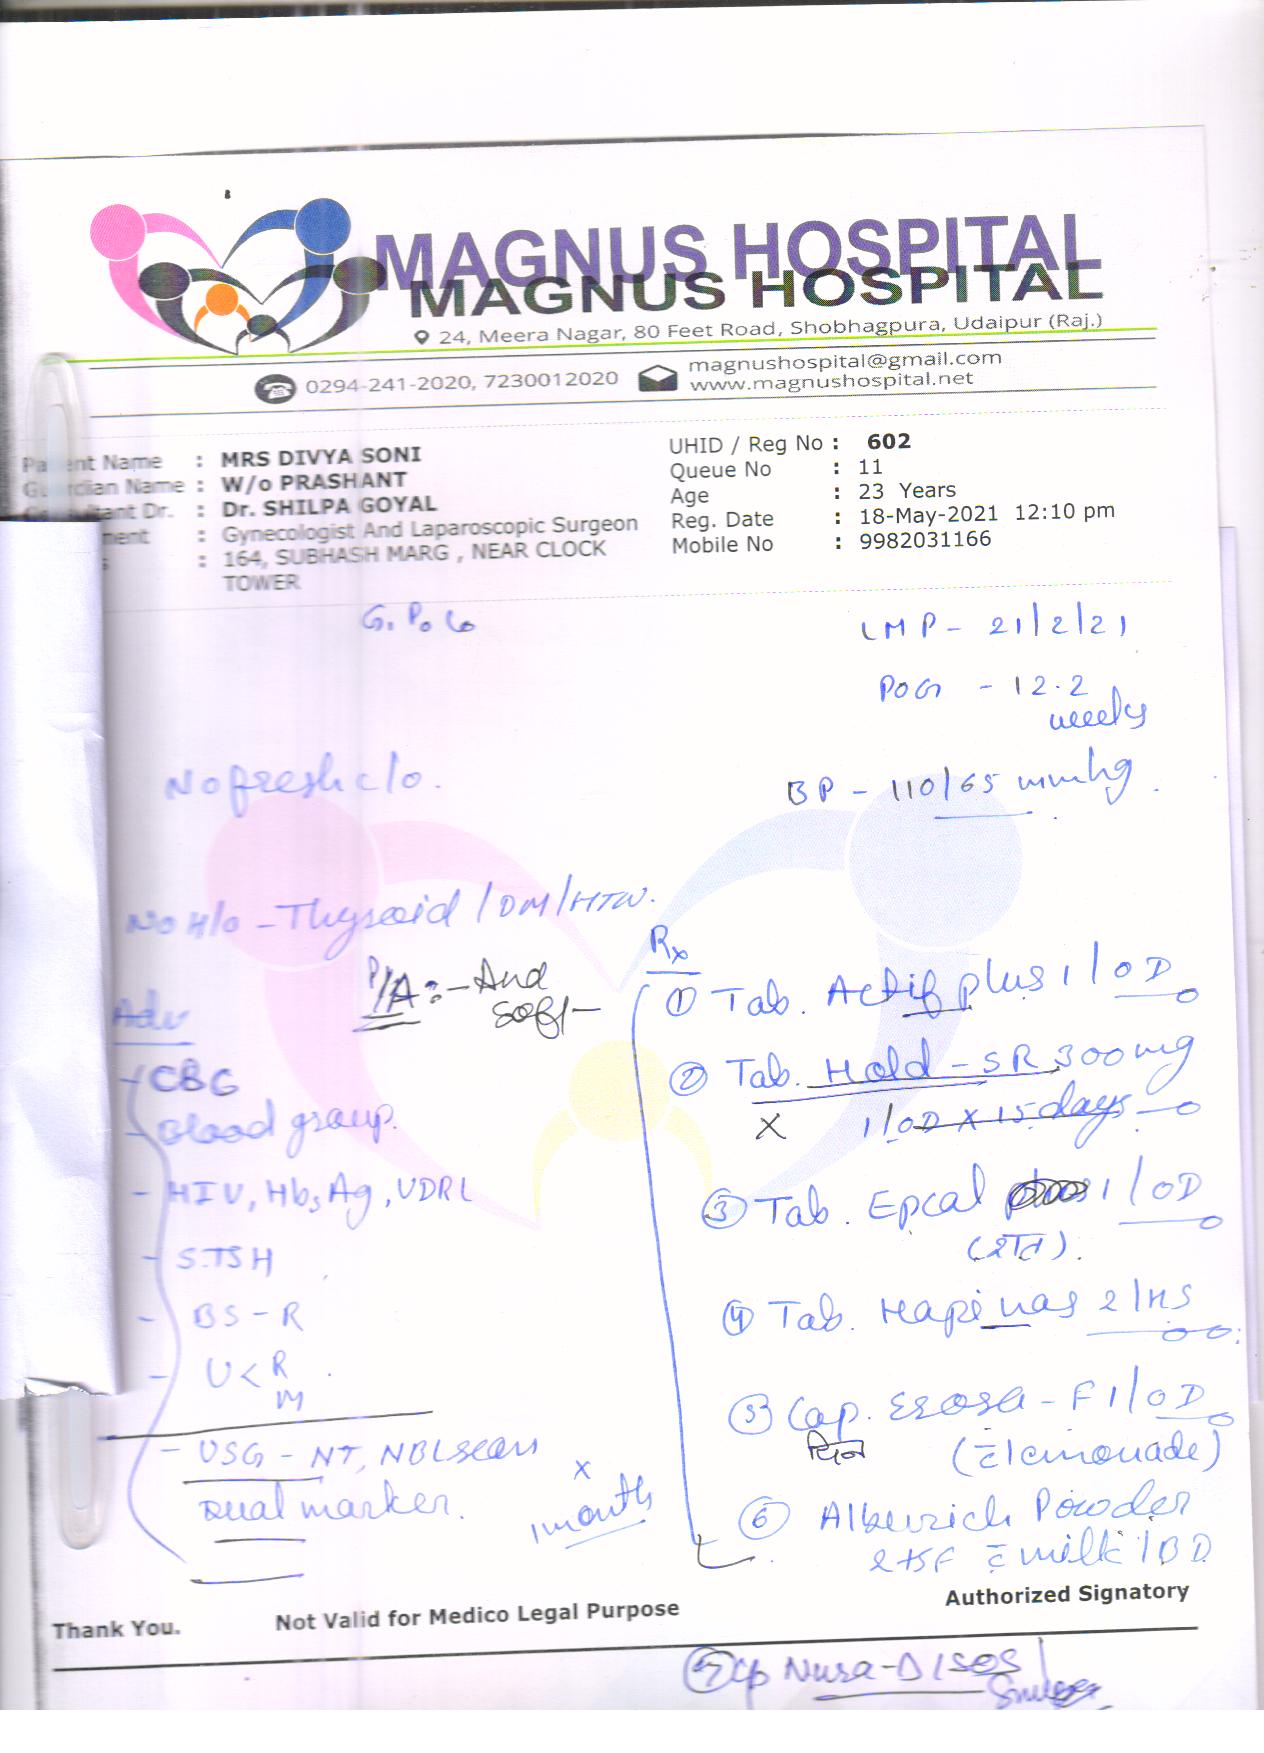 MAGNUS HOSPITAL
MAGNUS HOSPITAL
24, Meera Nagar, 80 Feet Road, Shobhagpura, Udaipur (Raj.)
0294-241-2020, 7230012020
magnushospital@gmail.com
www.magnushospital.net
Patient Name : MRS DIVYA SONI
Guardian Name : W/o PRASHANT
Consultant Dr. : Dr. SHILPA GOYAL
ment : Gynecologist And Laparoscopic Surgeon
s : 164, SUBHASH MARG , NEAR CLOCK
TOWER
UHID / Reg No : 602
Queue No : 11
Age : 23 Years
Reg. Date : 18-May-2021 12:10 pm
Mobile No : 9982031166
G1 P0 L0
LMP - 21/2/21
POG - 12.2
weeks
No fresh c/o.
BP - 110/65 mmhg
No H/o - Thyroid / DM / HTN.
P/A :- And
soft
Adv
- CBG
- Blood group.
- HIV, HbsAg, VDRL
- S.TSH
- BS - R
- U < R
M
- USG - NT, NBL scan
Dual marker.
x
1 month
Rx
① Tab. Actif plus 1/OD
② Tab. Hold - SR 300 mg
X 1/OD x 15 days
③ Tab. Epcal 1/OD
(रात).
④ Tab. Hapinas 2/HS
⑤ Cap. - F 1/OD
दिन (c̄ lemonade)
⑥ Powder
2 tsf c̄ milk / BD
Thank You. Not Valid for Medico Legal Purpose Authorized Signatory
⑦ Cp Nusa-D / SOS